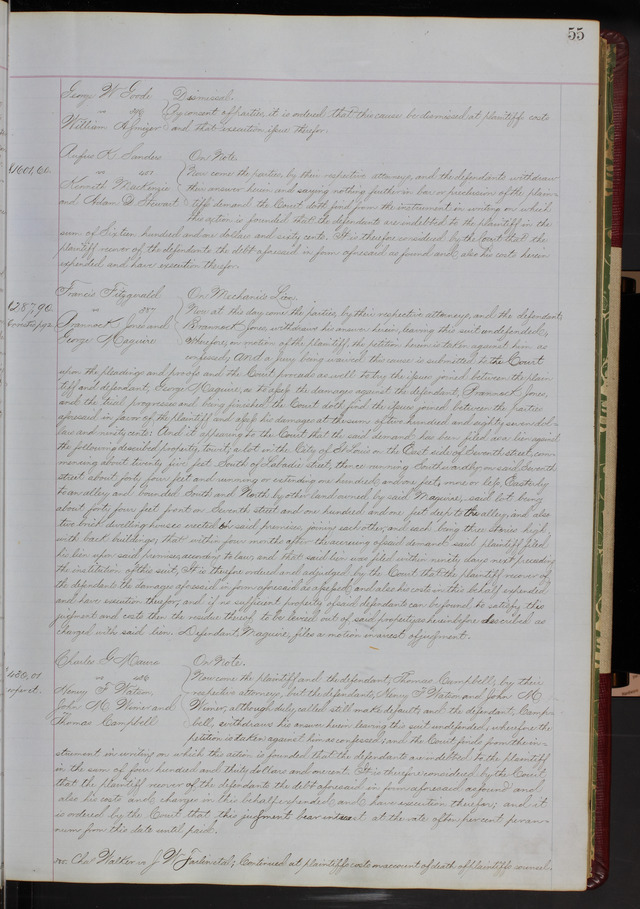 55
George W Goode Dismissal.
vs By consent of parties, it is ordered that this cause be dismissed at plaintiffs costs
William and that execution issue therefor.
Rufus K. Sanders On Note.
vs Now come the parties, by their respective attorneys, and the defendants withdraw
$1601,60. Kenneth MacKenzie their answer herein and saying nothing further in bar or preclusion of the plain-
and Adam D Stewart tiffs demand, the Court doth find from the instrument in writing on which
this action is founded that the defendants are indebted to the plaintiff in the
sum of Sixteen hundred and one dollars and sixty cents. It is therefore considered by the Court that the
plaintiff recover of the defendants the debt aforesaid in form aforesaid as found and also his costs herein
expended and have execution therefor.
Francis Fitzgerald On Mechanics Lien.
$287,90. vs Now at this day come the parties, by their respective attorneys, and the defendant
Jones and Jones, withdraws his answer herein, leaving this suit undefended;
George Maguire wherefore, on motion of the plaintiff, the petition herein is taken against him as
confessed; and a jury being waived this cause is submitted to the Court
upon the pleadings and proofs and the Court proceeds as well to try the issue joined between the plain
tiff and defendant, George Maguire, as to assess the damages against the defendant, Jones,
and the trial progresses and being finished, the Court doth find the issue joined between the parties
aforesaid in favor of the plaintiff and assess his damages at the sum of two hundred and eighty seven dol-
lars and ninety cents: And it appearing to the Court that the said demand has been filed as a lien against
the following described property, to wit; a lot in the City of St Louis on the East side of Seventh street, com-
mencing about twenty five feet South of Labadie street, thence running Southwardly on said Seventh
street about forty four feet and running or extending one hundred and one feet, more or less, Easterly
to an alley and bounded South and North by other land owned by said Maguire, said lot being
about forty four feet front on Seventh street and one hundred and one feet deep to the alley; and also
two brick dwelling houses erected on said premises, joining each other, and each being three stories high,
with back buildings; that within four months after the accruing of said demand said plaintiff filed
his lien upon said premises, according to law; and that said lien was filed within ninety days next preceding
the institution of this suit; It is therefore ordered and adjudged by the Court that the plaintiff recover of
the defendants the damages aforesaid in form aforesaid assessed, and also his costs in this behalf expended
and have execution therefor; and if no sufficient property of said defendants can be found to satisfy this
judgment and costs then the residue thereof to be levied out of said property as hereinbefore described as
charged with said lien. Defendant, Maguire, files a motion in arrest of judgment.
Charles G Mauro On Note.
$430,01 vs Now come the plaintiff and the defendant, Thomas Campbell, by their
Henry F Watson, respective attorneys, but the defendants, Henry F Watson and John M
John M Wimer and Wimer, although duly called still make default; and the defendant, Camp-
Thomas Campbell bell, withdraws his answer herein leaving this suit undefended; wherefore the
petition is taken against him as confessed; and the Court finds from the in-
strument in writing on which the action is founded that the defendants are indebted to the plaintiff
in the sum of four hundred and thirty dollars and one cent. It is therefore considered by the Court
that the plaintiff recover of the defendants the debt aforesaid in form aforesaid as found and
also his costs and charges in this behalf expended and have execution therefor; and it
is ordered by the Court that this judgment bear interest at the rate of ten per cent per an-
num from this date until paid.
Chas Walker vs J. W. et al; Continued at plaintiffs costs on account of death of plaintiffs counsel.